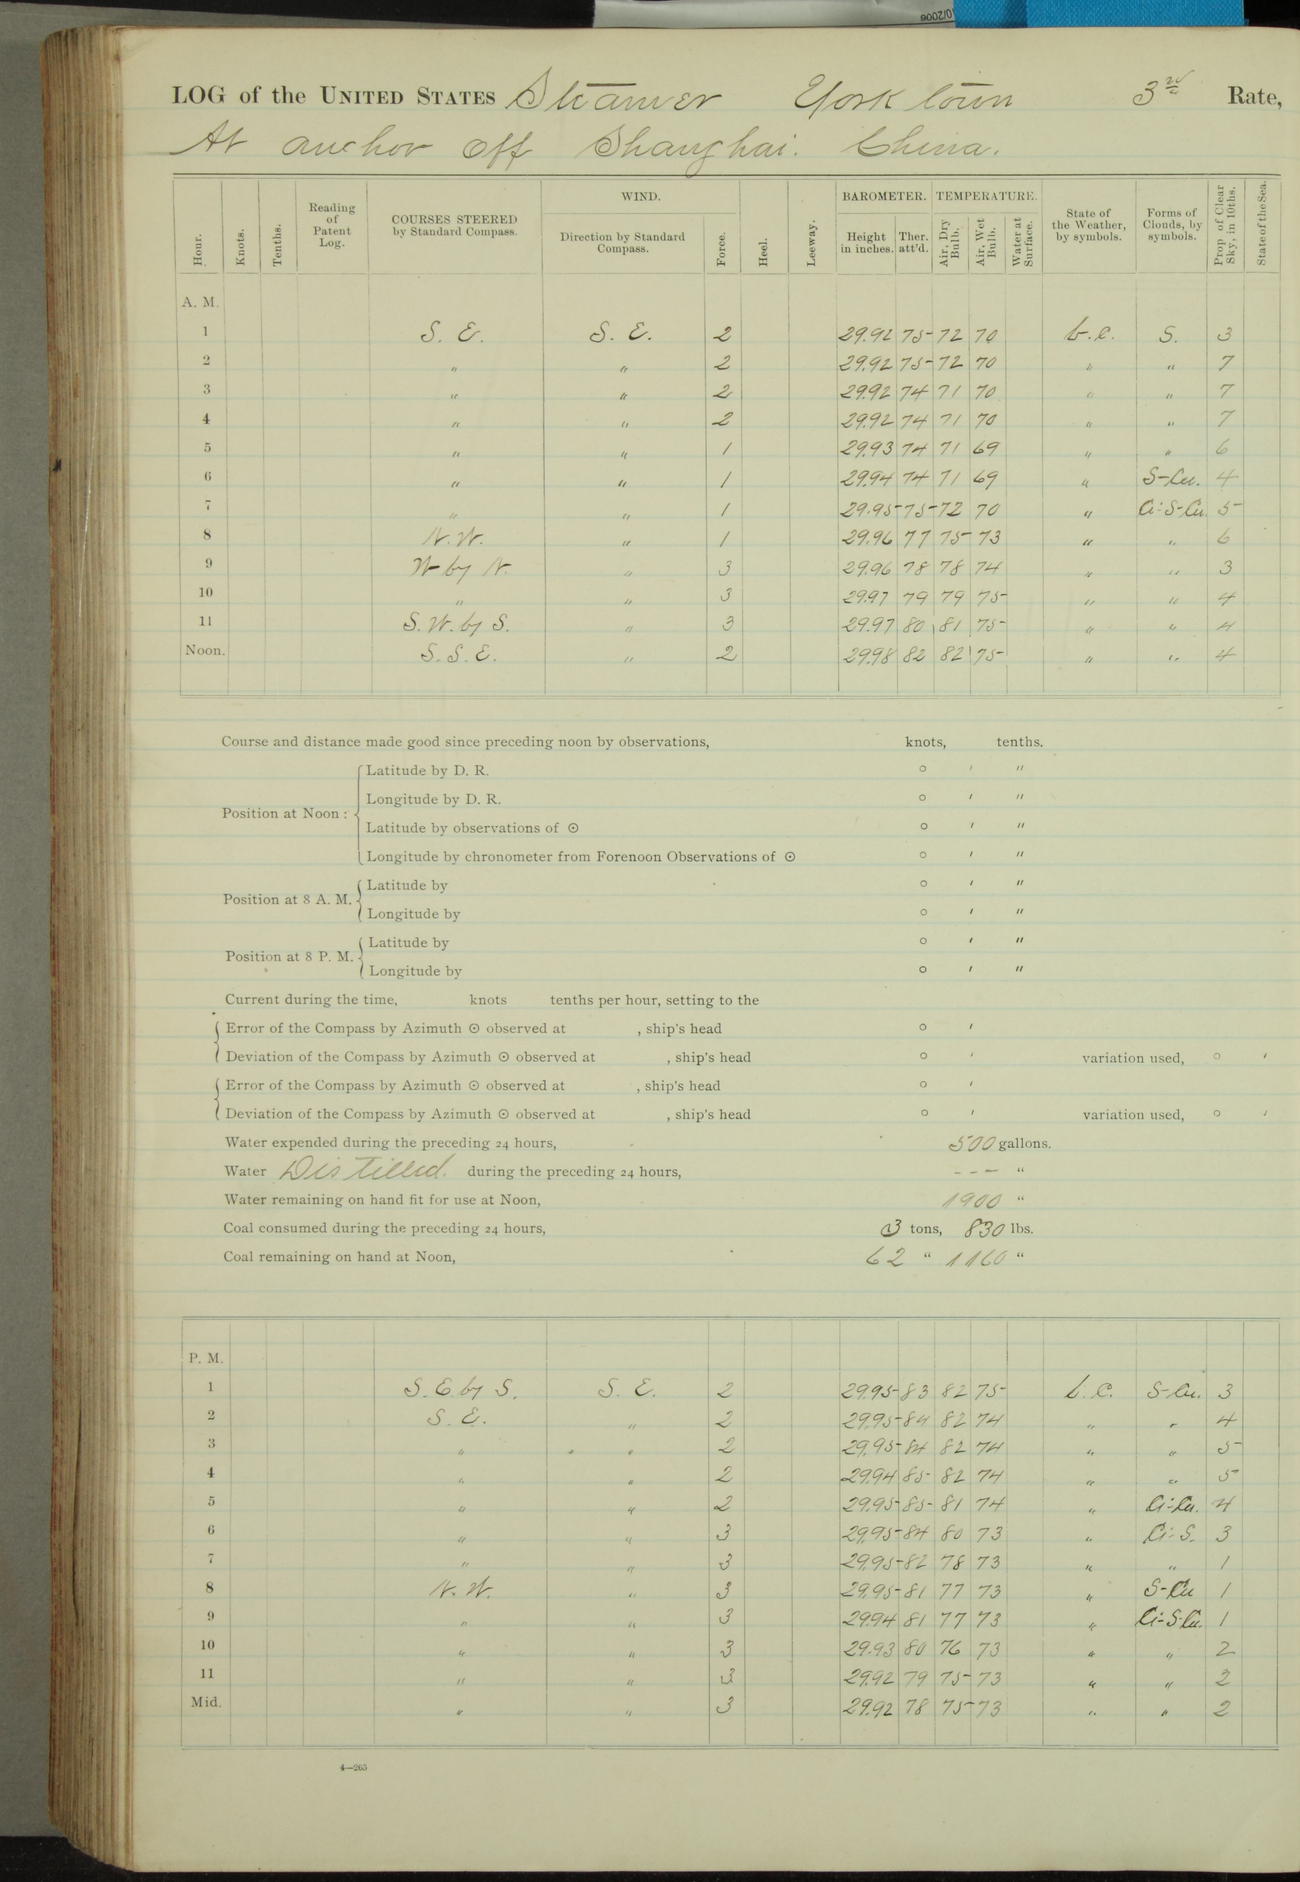 10/2006
LOG of the UNITED STATES Steamer Yorktown 3rd Rate,
At anchor off Shanghai. China.
Hour. Knots. Tenths. Reading of Patent Log. COURSES STEERED by Standard Compass. WIND. Direction by Standard Compass. Force. Heel. Leeway. BAROMETER. Height in inches. Ther. att'd. TEMPERATURE. Air, Dry Bulb. Air, Wet Bulb. Water at Surface. State of the Weather, by symbols. Forms of Clouds, by symbols. Prop. of Clear Sky, in 10ths. State of the Sea.
A. M.
1 S. E. S. E. 2 29.92 75 72 70 b.c. S. 3
2 " " 2 29.92 75 72 70 " " 7
3 " " 2 29.92 74 71 70 " " 7
4 " " 2 29.92 74 71 70 " " 7
5 " " 1 29.93 74 71 69 " " 6
6 " " 1 29.94 74 71 69 " S-Cu. 4
7 " " 1 29.95 75 72 70 " Ci-S-Cu. 5
8 N. W. " 1 29.96 77 75 73 " " 6
9 W by N. " 3 29.96 78 78 74 " " 3
10 " " 3 29.97 79 79 75 " " 4
11 S. W. by S. " 3 29.97 80 81 75 " " 4
Noon. S. S. E. " 2 29.98 82 82 75 " " 4
Course and distance made good since preceding noon by observations, knots, tenths.
Position at Noon :
Latitude by D. R. ° ′ ″
Longitude by D. R. ° ′ ″
Latitude by observations of ☉ ° ′ ″
Longitude by chronometer from Forenoon Observations of ☉ ° ′ ″
Position at 8 A. M.
Latitude by ° ′ ″
Longitude by ° ′ ″
Position at 8 P. M.
Latitude by ° ′ ″
Longitude by ° ′ ″
Current during the time, knots tenths per hour, setting to the
Error of the Compass by Azimuth ☉ observed at , ship's head ° ′
Deviation of the Compass by Azimuth ☉ observed at , ship's head ° ′ variation used, ° ′
Error of the Compass by Azimuth ☉ observed at , ship's head ° ′
Deviation of the Compass by Azimuth ☉ observed at , ship's head ° ′ variation used, ° ′
Water expended during the preceding 24 hours, 500 gallons.
Water Distilled during the preceding 24 hours, --- "
Water remaining on hand fit for use at Noon, 1900 "
Coal consumed during the preceding 24 hours, 3 tons, 830 lbs.
Coal remaining on hand at Noon, 62 " 1160 "
P. M.
1 S. E by S. S. E. 2 29.95 83 82 75 b.c. S-Cu. 3
2 S. E. " 2 29.95 84 82 74 " " 4
3 " " 2 29.95 84 82 74 " " 5
4 " " 2 29.94 85 82 74 " " 5
5 " " 2 29.95 85 81 74 " Ci-Cu. 4
6 " " 3 29.95 84 80 73 " Ci-S. 3
7 " " 3 29.95 82 78 73 " " 1
8 N. W. " 3 29.95 81 77 73 " S-Cu 1
9 " " 3 29.94 81 77 73 " Ci-S-Cu. 1
10 " " 3 29.93 80 76 73 " " 2
11 " " 3 29.92 79 75 73 " " 2
Mid. " " 3 29.92 78 75 73 " " 2
4—265